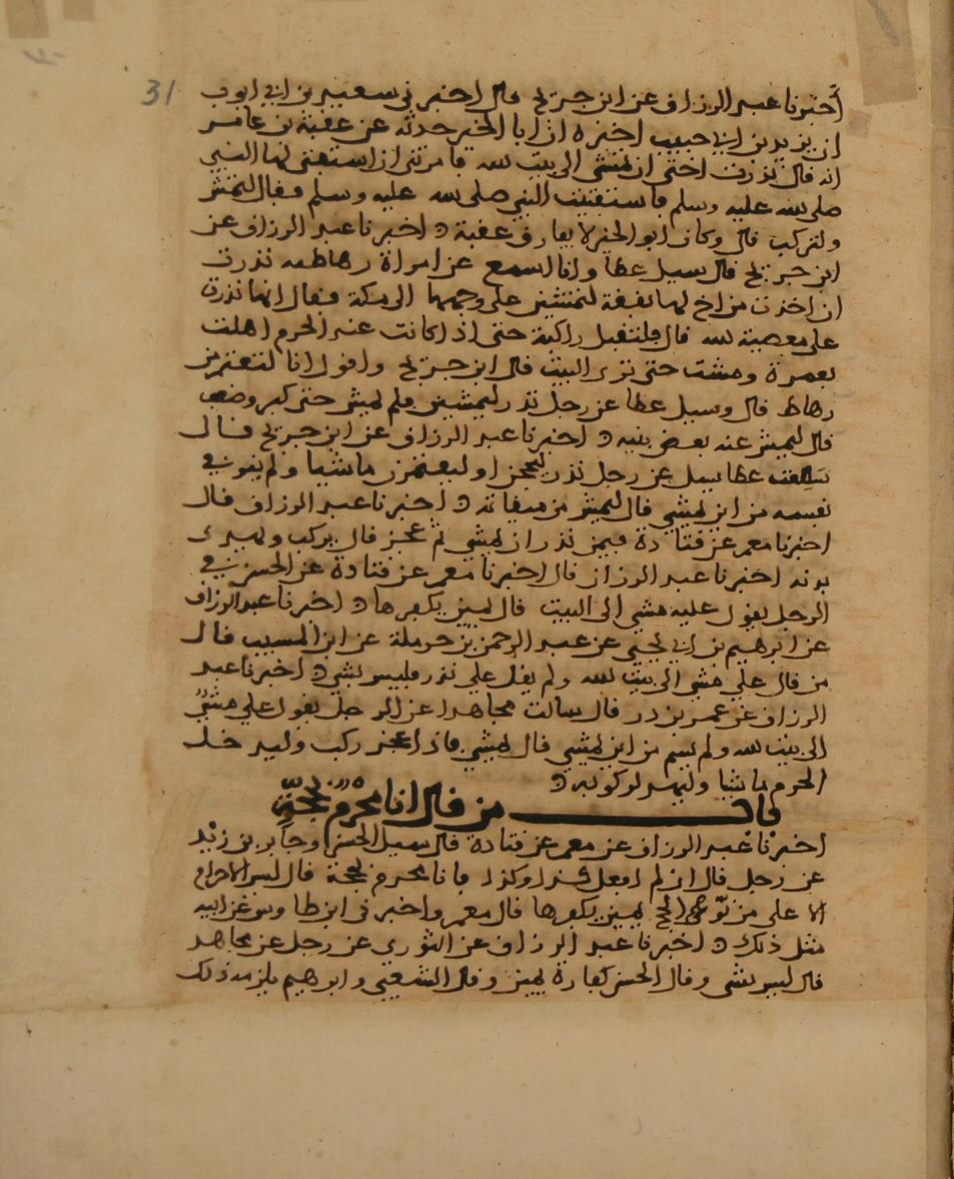 31
أخبرنا عبد الرزاق عن ابن جريج قال اخبرني سعيد بن ابي ايوب
ان يزيد بن ابي حبيب اخبره ان ابا الخير حدثه عن عقبة بن عامر
انه قال نذرت اختي ان تمشي الى بيت الله فامرتني ان استفتي لها النبي
صلى الله عليه وسلم فاستفتيت النبي صلى الله عليه وسلم فقال لتمش
ولتركب قال وكان ابو الخير لا يفارق عقبة اخبرنا عبد الرزاق عن
ابن جريج قال سيل عطا وانا اسمع عن امراة رهاط نذرت
ان اخذت من اخ لها نفقة لتمشين على وجهها الى مكة فقال انما نذرت
على معصية لله قال فلتقبل راكبة حتى اذا كانت عند الحرم اهلت
بعمرة ومشت حتى ترى البيت قال ابن جريج واقول انا لتعتمر من
رهاط قال وسيل عطا عن رجل نذر ليمشين فلم يمش حتى كبر وضعف
قال ليمش عنه بعض بنيه اخبرنا عبد الرزاق عن ابن جريج قال
سمعت عطا يسل عن رجل نذر ليحجن او ليعتمرن ماشيا ولم ينو في
نفسه من اين يمشي قال ليمش من ميقاته اخبرنا عبد الرزاق قال
اخبرنا معمر عن قتادة فيمن نذر ان يمشي ثم عجز قال يركب ويهدي
بدنه اخبرنا عبد الرزاق قال اخبرنا معمر عن قتادة عن الحسن في
الرجل يقول عليه مشي الى البيت قال يمين يكفرها اخبرنا عبد الرزاق
عن ابرهيم بن ابي يحيى عن عبد الرحمن بن حرملة عن ابن المسيب قال
من قال علي مشي الى بيت الله ولم يقل علي نذر فليس بشي اخبرنا عبد
الرزاق عن عمر بن ذر قال سالت مجاهدا عن الرجل يقول علي مشي
الى بيت الله ولم يسم من اين يمشي قال يمشي فاذا عجز ركب وليدخل
الحرم ماشيا وليهد لركوبه
باب من قال انا محرم بحجة
اخبرنا عبد الرزاق عن معمر عن قتادة قال سيل الحسن وجابر بن زيد
عن رجل قال ان لم افعل كذا وكذا فانا محرم بحجة قال ليس الاحرام
الا على من نوى الحج يمين يكفرها قال معمر واخبرني ابن طاوس عن ابيه
مثل ذلك اخبرنا عبد الرزاق عن الثوري عن رجل عن مجاهد
قال ليس بشي وقال الحسن كفارة يمين وقال الشعبي وابرهيم يلزمه ذلك